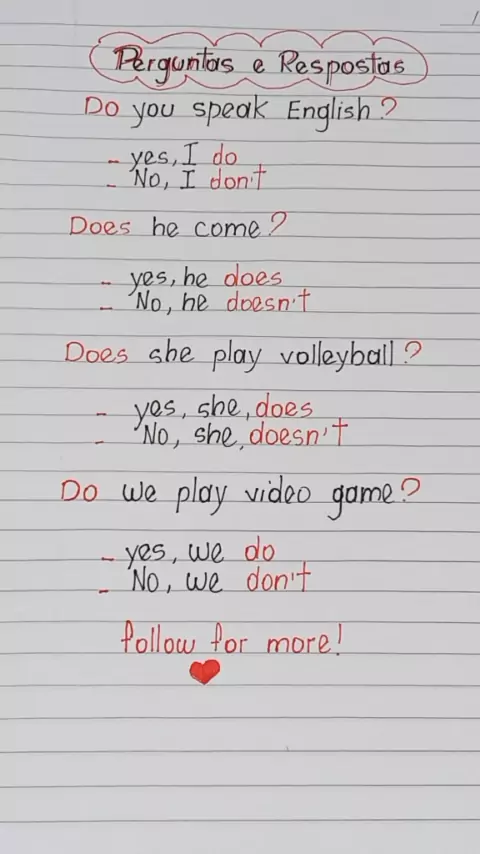 Perguntas e Respostas
Do you speak English?
- yes, I do
- No, I don't
Does he come?
- yes, he does
- No, he doesn't
Does she play volleyball?
- yes, she, does
- No, she, doesn't
Do we play video game?
- yes, we do
- No, we don't
follow for more!